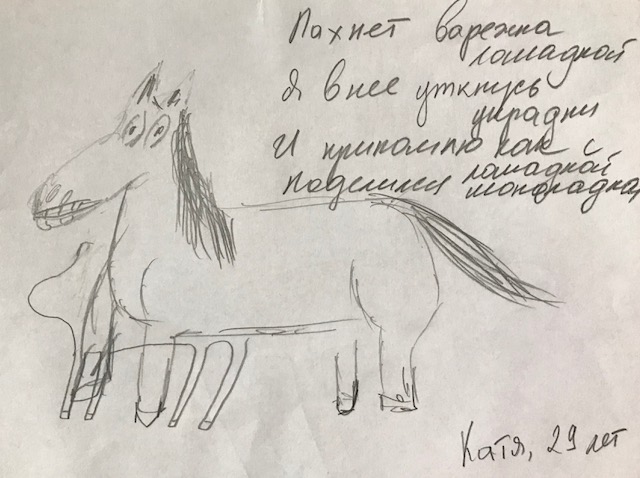 Пахнет варежка
лошадкой
Я в нее уткнусь
украдки
И припомню как с
лошадкой
Поделился шоколадкой
Катя, 29 лет